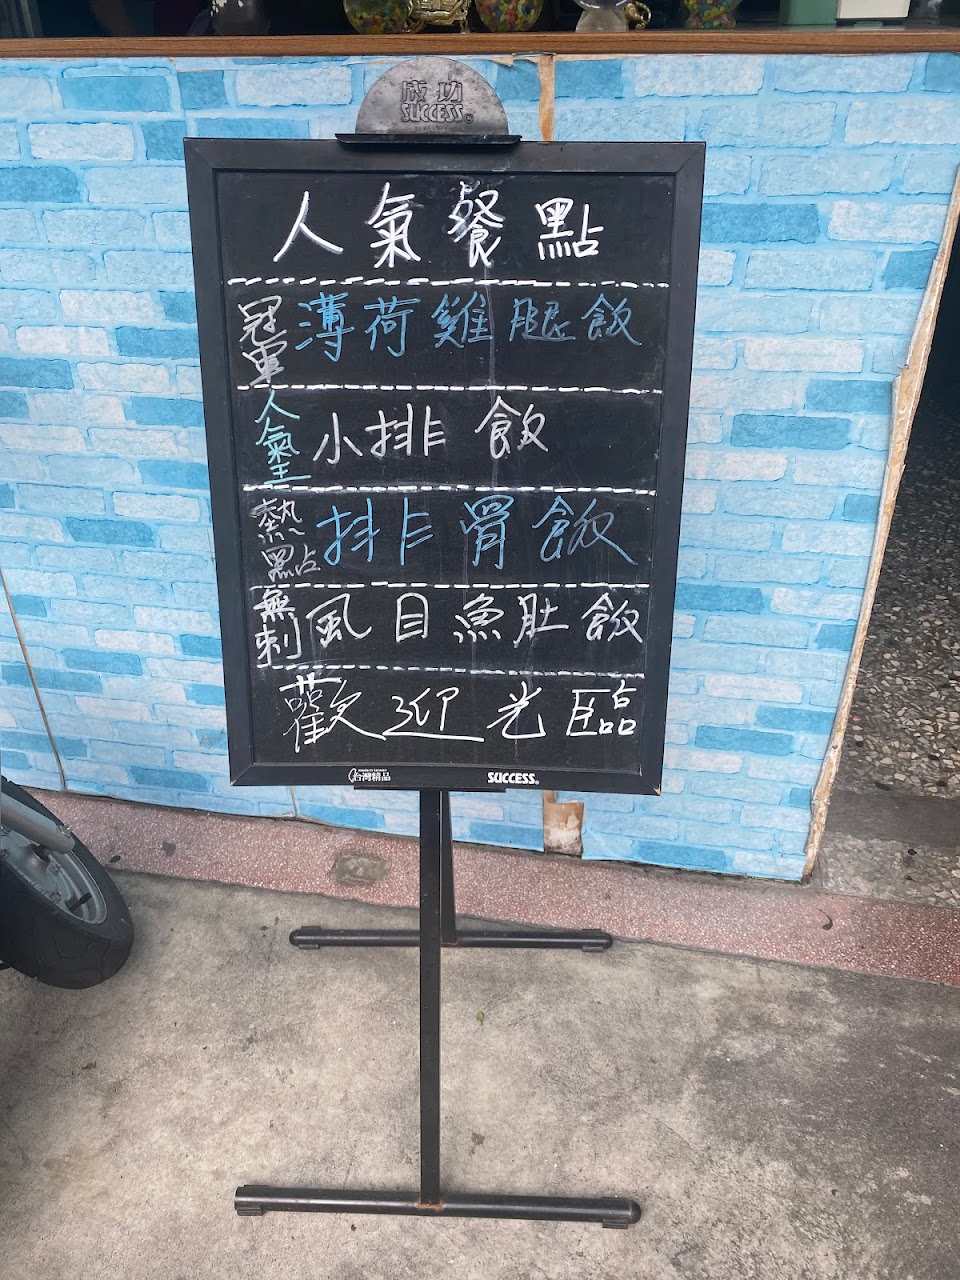 成功
SUCCESS
人氣餐點
冠軍 薄荷雞腿飯
人氣王 小排飯
熱點 排骨飯
無刺 虱目魚肚飯
歡迎光臨
台灣精品 SUCCESS